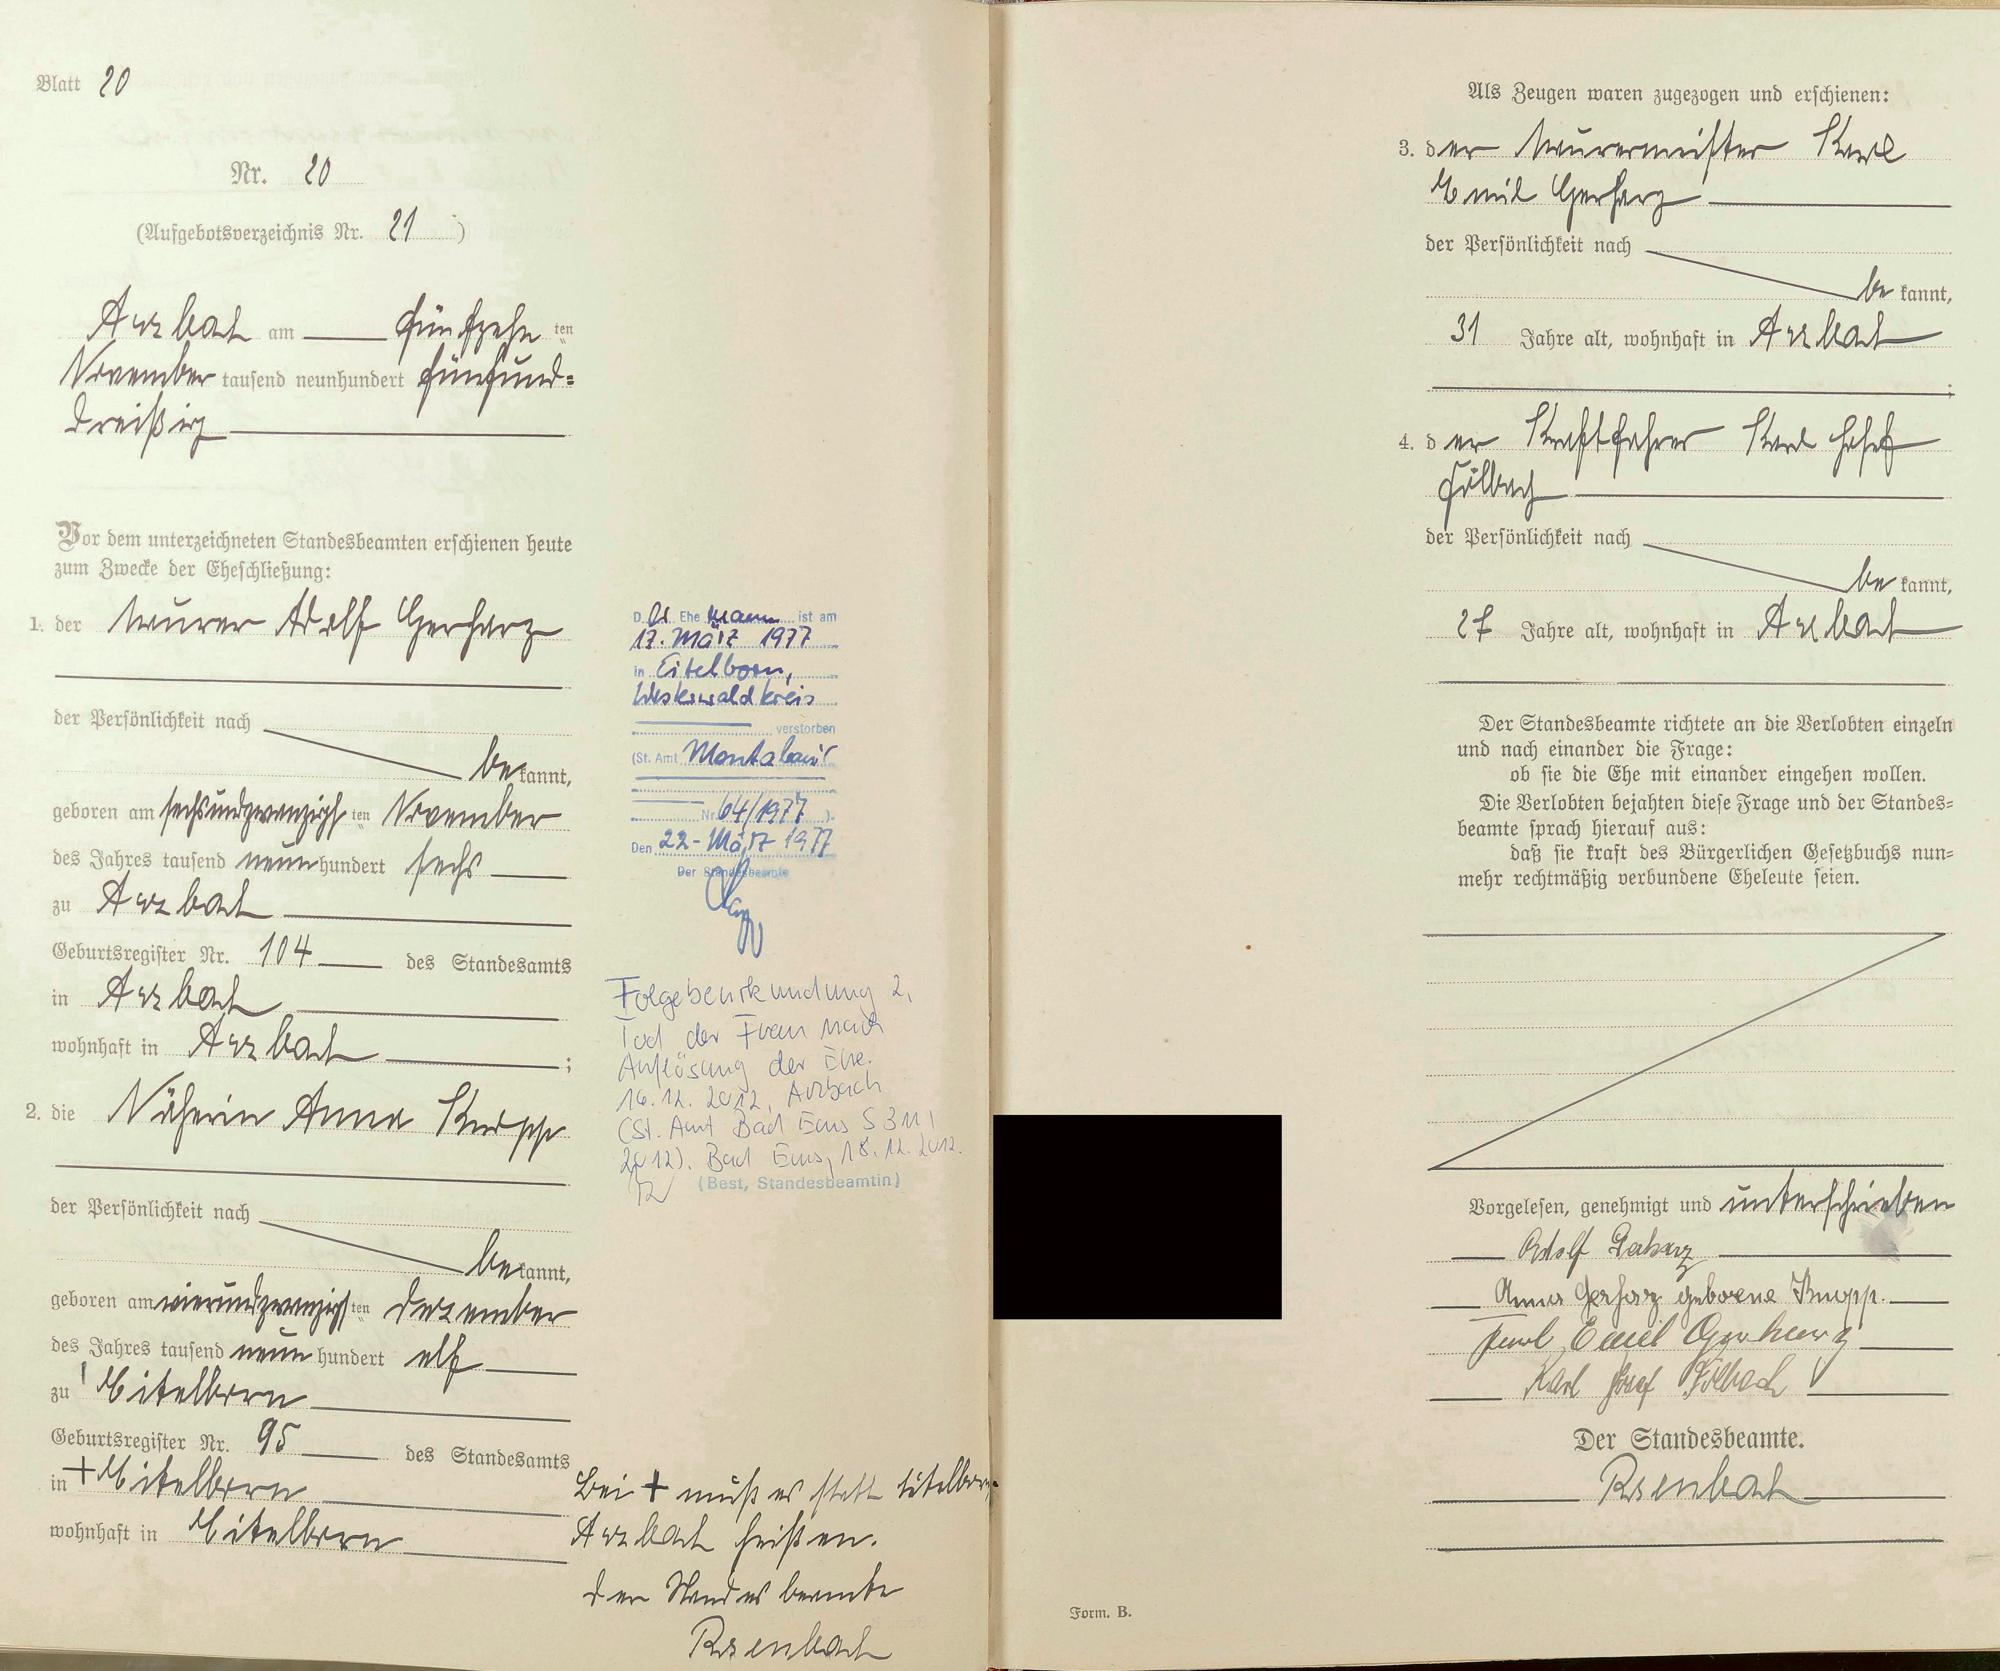 Blatt 20
Nr. 20
(Aufgebotsverzeichnis Nr. 21)
Arzbach am fünfzehn ten
November tausend neunhundert fünfund=
dreißig
Vor dem unterzeichneten Standesbeamten erschienen heute
zum Zwecke der Eheschließung:
1. der Maurer Adolf Gerharz
der Persönlichkeit nach
bekannt,
geboren am sechsundzwanzigsten November
des Jahres tausend neunhundert sechs
zu Arzbach
Geburtsregister Nr. 104 des Standesamts
in Arzbach
wohnhaft in Arzbach ;
2. die Näherin Anna Knopp
der Persönlichkeit nach
bekannt,
geboren am vierundzwanzigsten Dezember
des Jahres tausend neunhundert elf
zu Eitelborn
Geburtsregister Nr. 95 des Standesamts
in + Eitelborn
wohnhaft in Eitelborn
Der Ehemann ist am
17. März 1977
in Eitelborn,
Westerwaldkreis
verstorben
(St. Amt Montabaur
Nr. 64/1977 ).
Den 22. März 1977
Der Standesbeamte
Folgebeurkundung 2,
Tod der Frau nach
Auflösung der Ehe.
16.12.2012, Arzbach
(St. Amt Bad Ems S 311/
2012). Bad Ems, 18.12.2012.
(Best, Standesbeamtin)
Bei + muß es statt Eitelborn
Arzbach heißen.
Der Standesbeamte
Rosenbach
Als Zeugen waren zugezogen und erschienen:
3. der Maurermeister Karl
Emil Gerharz
der Persönlichkeit nach
bekannt,
31 Jahre alt, wohnhaft in Arzbach
;
4. der Kraftfahrer Karl Josef
Fülbach
der Persönlichkeit nach
bekannt,
27 Jahre alt, wohnhaft in Arzbach
Der Standesbeamte richtete an die Verlobten einzeln
und nach einander die Frage:
ob sie die Ehe mit einander eingehen wollen.
Die Verlobten bejahten diese Frage und der Standes=
beamte sprach hierauf aus:
daß sie kraft des Bürgerlichen Gesetzbuchs nun=
mehr rechtmäßig verbundene Eheleute seien.
Vorgelesen, genehmigt und unterschrieben
Adolf Gerharz
Anna Gerharz geborene Knopp.
Karl Emil Gerharz
Karl Josef Fülbach
Der Standesbeamte.
Rosenbach
Form. B.